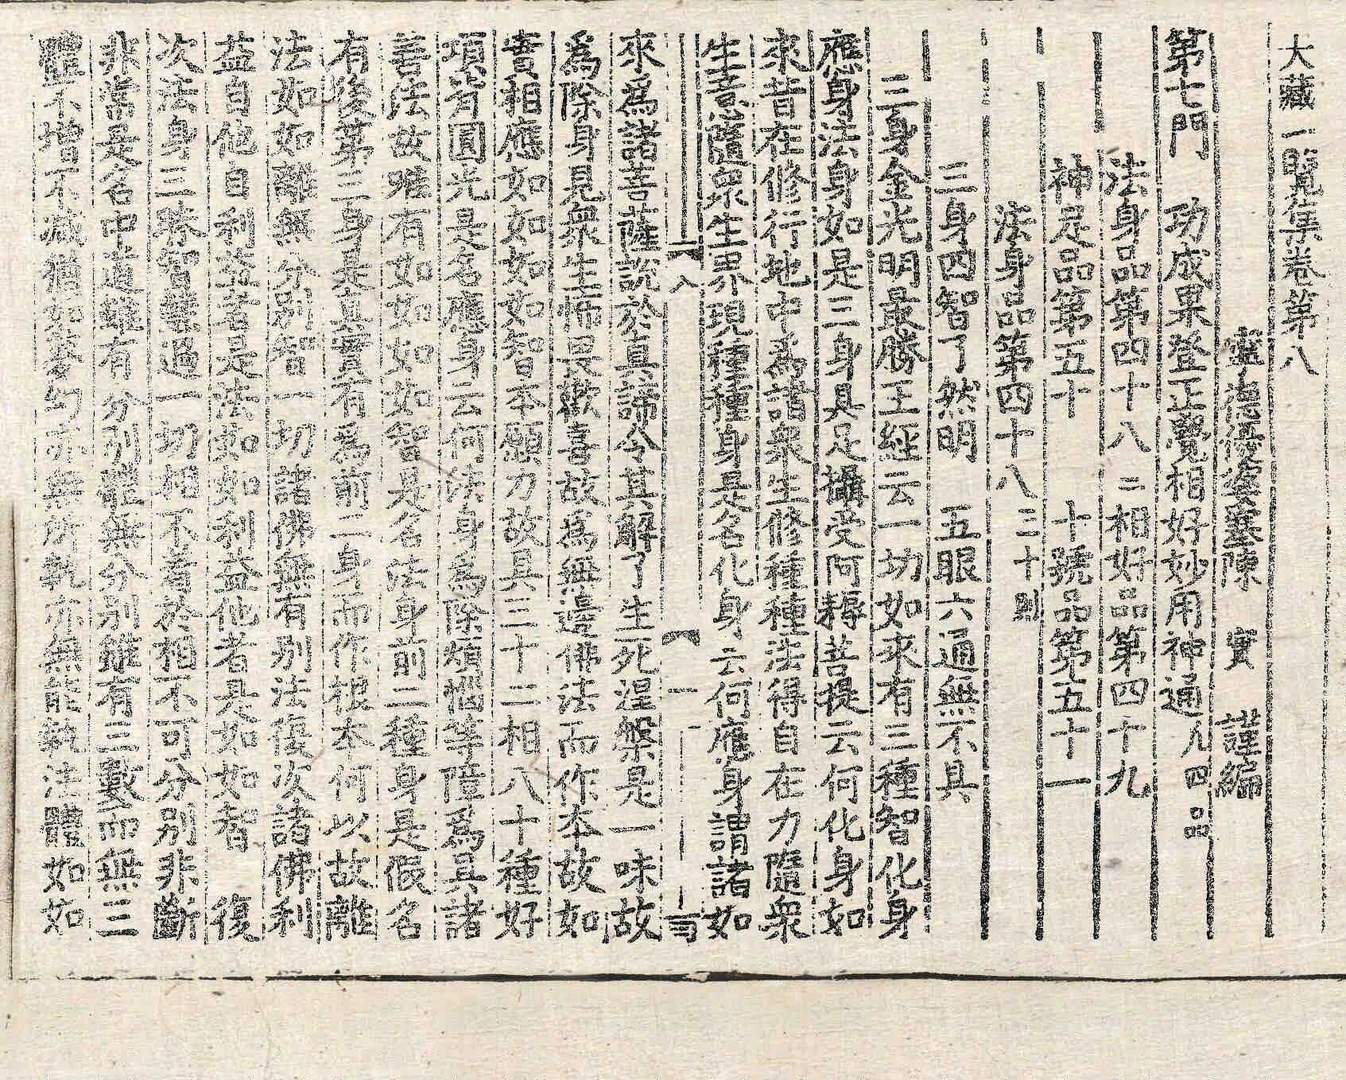 大藏一覽集卷第八
寧德優婆塞陳　實　謹編
第七門　功成果登正覺相好妙用神通凡四品
法身品第四十八　二相好品第四十九
神足品第五十　十號品第五十一
法身品第四十八　三十則
三身四智了然明　五眼六通無不具
三身金光明最勝王經云一切如來有三種智化身
應身法身如是三身具足攝受阿耨菩提云何化身如
來昔在修行地中爲諸衆生修種種法得自在力隨衆
生意隨衆生界現種種身是名化身云何應身謂諸如
八　一
來爲諸菩薩說於真諦令其解了生死涅槃是一味故
爲除身見衆生怖畏歡喜故爲無邊佛法而作本故如
實相應如如如如智本願力故具三十二相八十種好
項背圓光是名應身云何法身爲除煩惱等障爲具諸
善法故唯有如如如如智是名法身前二種身是假名
有後第三身是真實有爲前二身而作根本何以故離
法如如離無分別智一切諸佛無有別法復次諸佛利
益自他自利益者是法如如利益他者是如如智　復
次法身三昧智慧過一切相不着於相不可分別非斷
非常是名中道雖有分別體無分別雖有三數而無三
體不增不減猶如夢幻亦無所執亦無能執法體如如